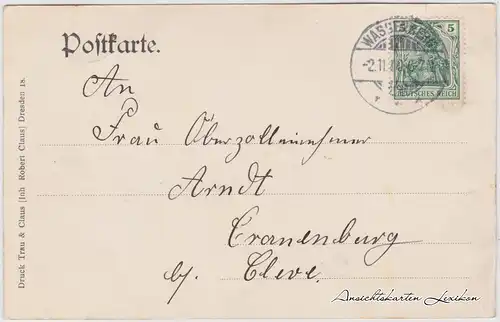 Postkarte.
5
DEUTSCHES REICH
An
Frau Oberzolleinnehmer
Arndt
Cranenburg
by. Cleve.
Druck Trau & Claus [Inh Robert Claus] Dresden 18.
Ansichtskarten Lexikon